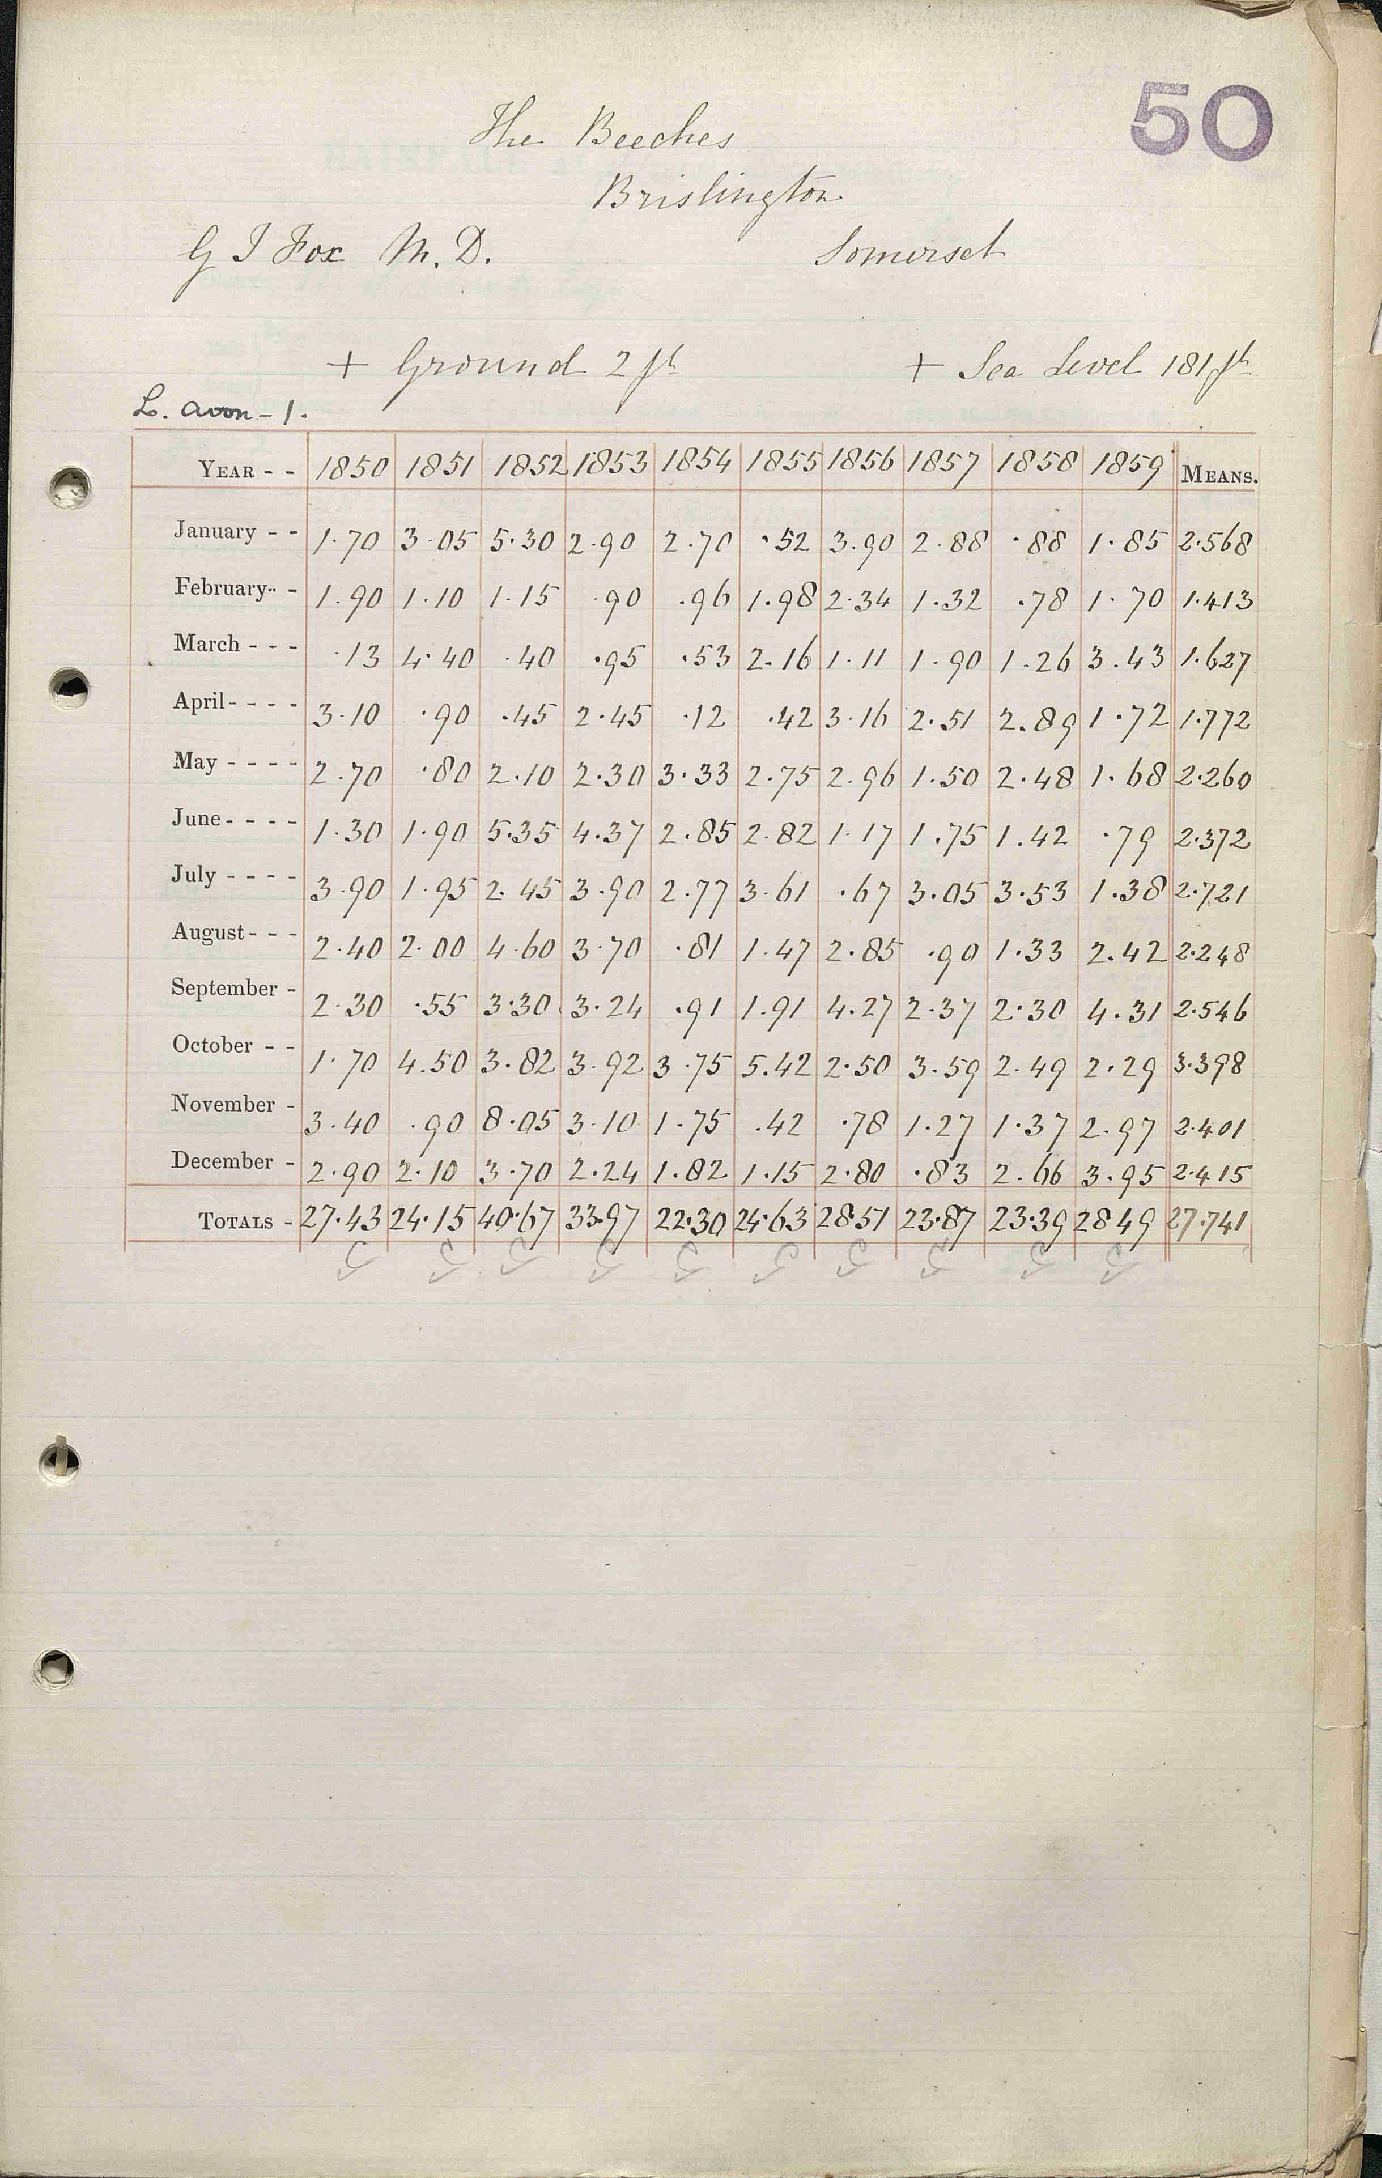 50
The Beeches
Brislington
G I Fox M. D. Somerset
+ Ground 2 ft + Sea Level 181 ft
L. Avon - 1.
YEAR - - 1850 1851 1852 1853 1854 1855 1856 1857 1858 1859 MEANS.
January - - 1.70 3.05 5.30 2.90 2.70 .52 3.90 2.88 .88 1.85 2.568
February - - 1.90 1.10 1.15 .90 .96 1.98 2.34 1.32 .78 1.70 1.413
March - - - .13 4.40 .40 .95 .53 2.16 1.11 1.90 1.26 3.43 1.627
April - - - - 3.10 .90 .45 2.45 .12 .42 3.16 2.51 2.89 1.72 1.772
May - - - - 2.70 .80 2.10 2.30 3.33 2.75 2.96 1.50 2.48 1.68 2.260
June - - - - 1.30 1.90 5.35 4.37 2.85 2.82 1.17 1.75 1.42 .79 2.372
July - - - - 3.90 1.95 2.45 3.90 2.77 3.61 .67 3.05 3.53 1.38 2.721
August - - - 2.40 2.00 4.60 3.70 .81 1.47 2.85 .90 1.33 2.42 2.248
September - 2.30 .55 3.30 3.24 .91 1.91 4.27 2.37 2.30 4.31 2.546
October - - 1.70 4.50 3.82 3.92 3.75 5.42 2.50 3.59 2.49 2.29 3.398
November - 3.40 .90 8.05 3.10 1.75 .42 .78 1.27 1.37 2.97 2.401
December - 2.90 2.10 3.70 2.24 1.82 1.15 2.80 .83 2.66 3.95 2.415
TOTALS - 27.43 24.15 40.67 33.97 22.30 24.63 28.51 23.87 23.39 28.49 27.741